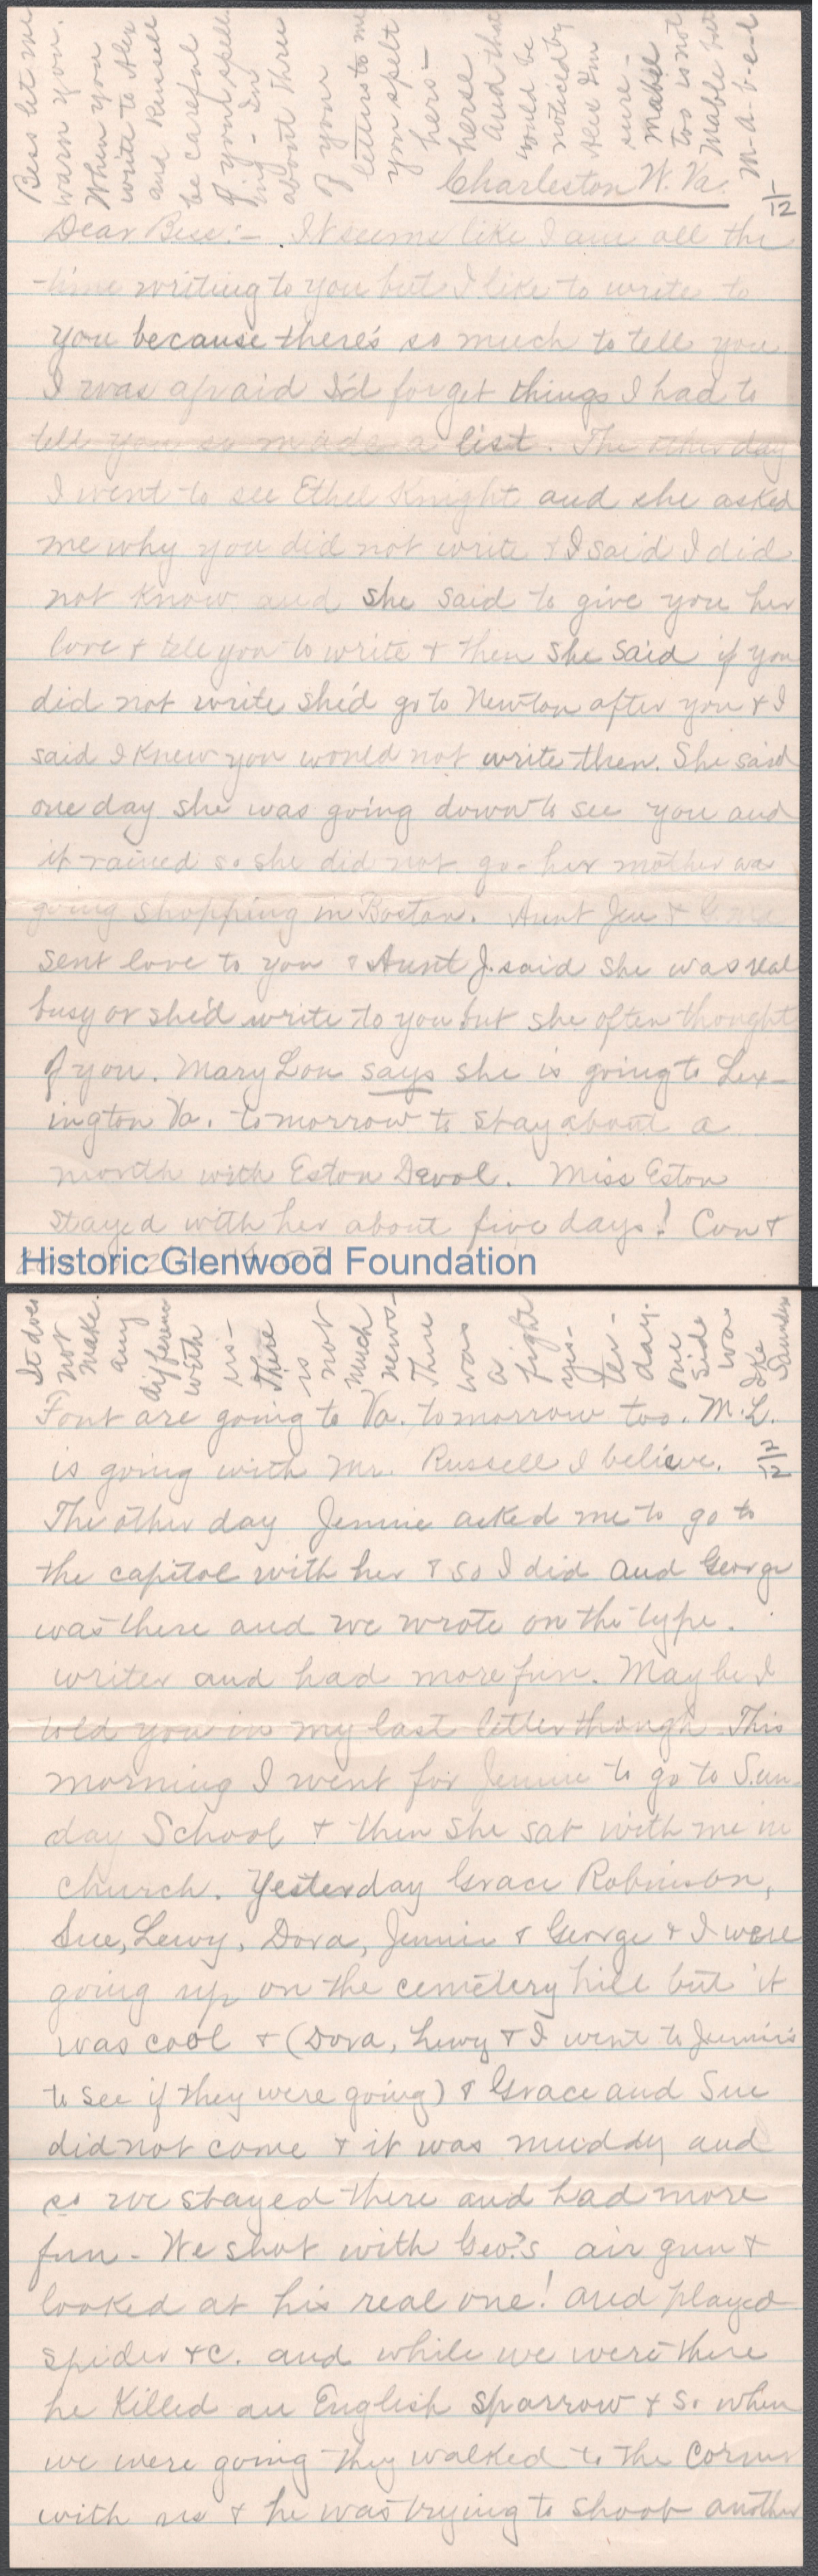 Bess let me
warn you.
When you
write to Alex
and Russell
be careful
of your spell
ing - In
about three
of your
letters to me
you spelt
hers -
herse
and that
would be
noticed by
Alex I'm
sure -
Mabel
too is not
Mable but
M-a-b-e-l
Charleston W. Va.
1/12
Dear Bess:- It seems like I am all the
-time writing to you but I like to write to
you because there's so much to tell you
I was afraid I'd forget things I had to
tell you so made a list. The other day
I went to see Ethel Knight and she asked
me why you did not write & I said I did
not know and she said to give you her
love & tell you to write & then she said if you
did not write she'd go to Newton after you & I
said I knew you would not write then. She said
one day she was going down to see you and
it rained so she did not go - her mother was
going shopping in Boston. Aunt Jen &
sent love to you & Aunt J. said she was real
busy or she'd write to you but she often thought
of you. Mary Lou says she is going to Lex-
ington Va. tomorrow to stay about a
month with Eston Devol. Miss Eston
stayed with her about five days! Con &
Historic Glenwood Foundation
It does
not
make
any
difference
with
us-
There
is
not
much
news-
There
was
a
fight
yes-
ter-
day.
one
side
was
Ike
Saunders
Font are going to Va. tomorrow too. M.L.
2/12
is going with Mr. Russell I believe.
The other day Jennie asked me to go to
the capitol with her & so I did and George
was there and we wrote on the type.
writer and had more fun. Maybe I
told you in my last letter though. This
morning I went for Jennie to go to Sun-
day School & then she sat with me in
church. Yesterday Grace Robinson,
Sue, Lewy, Dora, Jennie & George & I were
going up on the cemetery hill but it
was cool & (Dora, Lewy & I went to Jennie's
to see if they were going) & Grace and Sue
did not come & it was muddy and
so we stayed there and had more
fun - We shot with Geo.'s air gun &
looked at his real one! and played
spider &c. and while we were there
he killed an English sparrow & so when
we were going they walked to the corner
with us & he was trying to shoot another